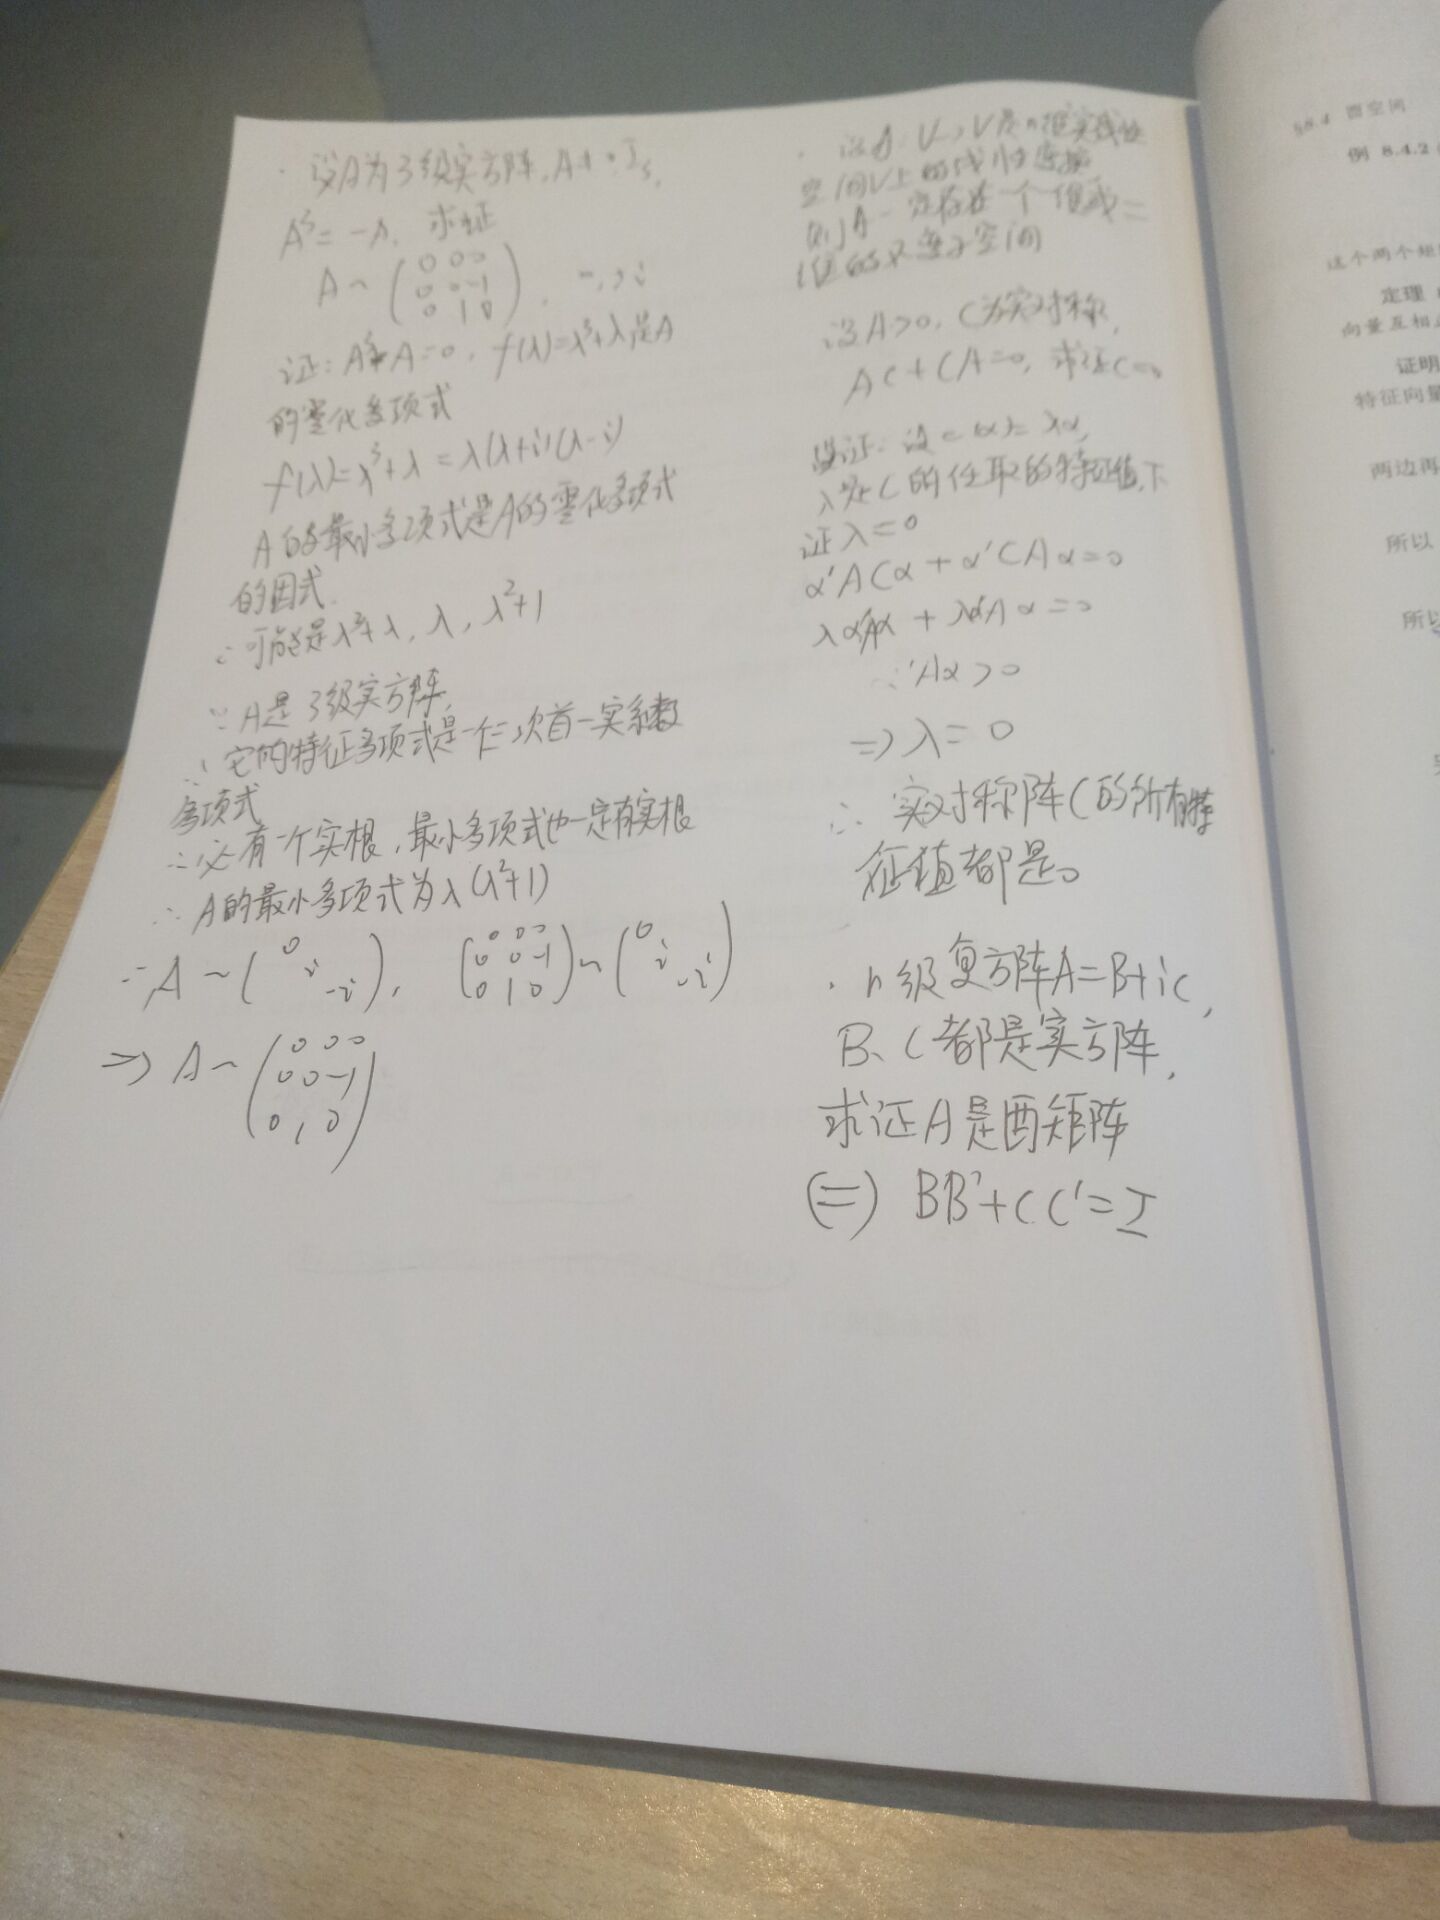 · 设A为3级实方阵, A≠0
A³=-A, 求证
A~(0 0 0
0 0 -1
0 1 0),
证: A³+A=0, f(λ)=λ³+λ是A
的零化多项式
f(λ)=λ³+λ=λ(λ+i)(λ-i)
A的最小多项式是A的零化多项式
的因式.
∴可能是λ³+λ, λ, λ²+1
∵A是3级实方阵,
∴它的特征多项式是一个三次首一实系数
多项式
∴必有一个实根,最小多项式也一定有实根
∴A的最小多项式为λ(λ²+1)
∴A~(0 i -i), (0 0 0
0 0 -1
0 1 0)~(0 i -i)
⇒A~(0 0 0
0 0 -1
0 1 0)
· 设A: V→V是n维实线性
空间V上的线性变换
则A一定存在一个一维或二
维的不变子空间
设A>0, C为实对称,
AC+CA=0, 求证C=0
证: 设Cα=λα,
λ是C的任取的特征值,下
证λ=0
α'ACα+α'CAα=0
λα'Aα+λα'Aα=0
∵α'Aα>0
⇒λ=0
∴实对称阵C的所有特
征值都是0
· n级复方阵A=B+iC,
B、C都是实方阵,
求证A是酉矩阵
(=) BB'+CC'=I
§8.4 酉空间
例 8.4.2
这个两个矩
定理
向量互相正
证明
特征向量
两边再
所以
所以